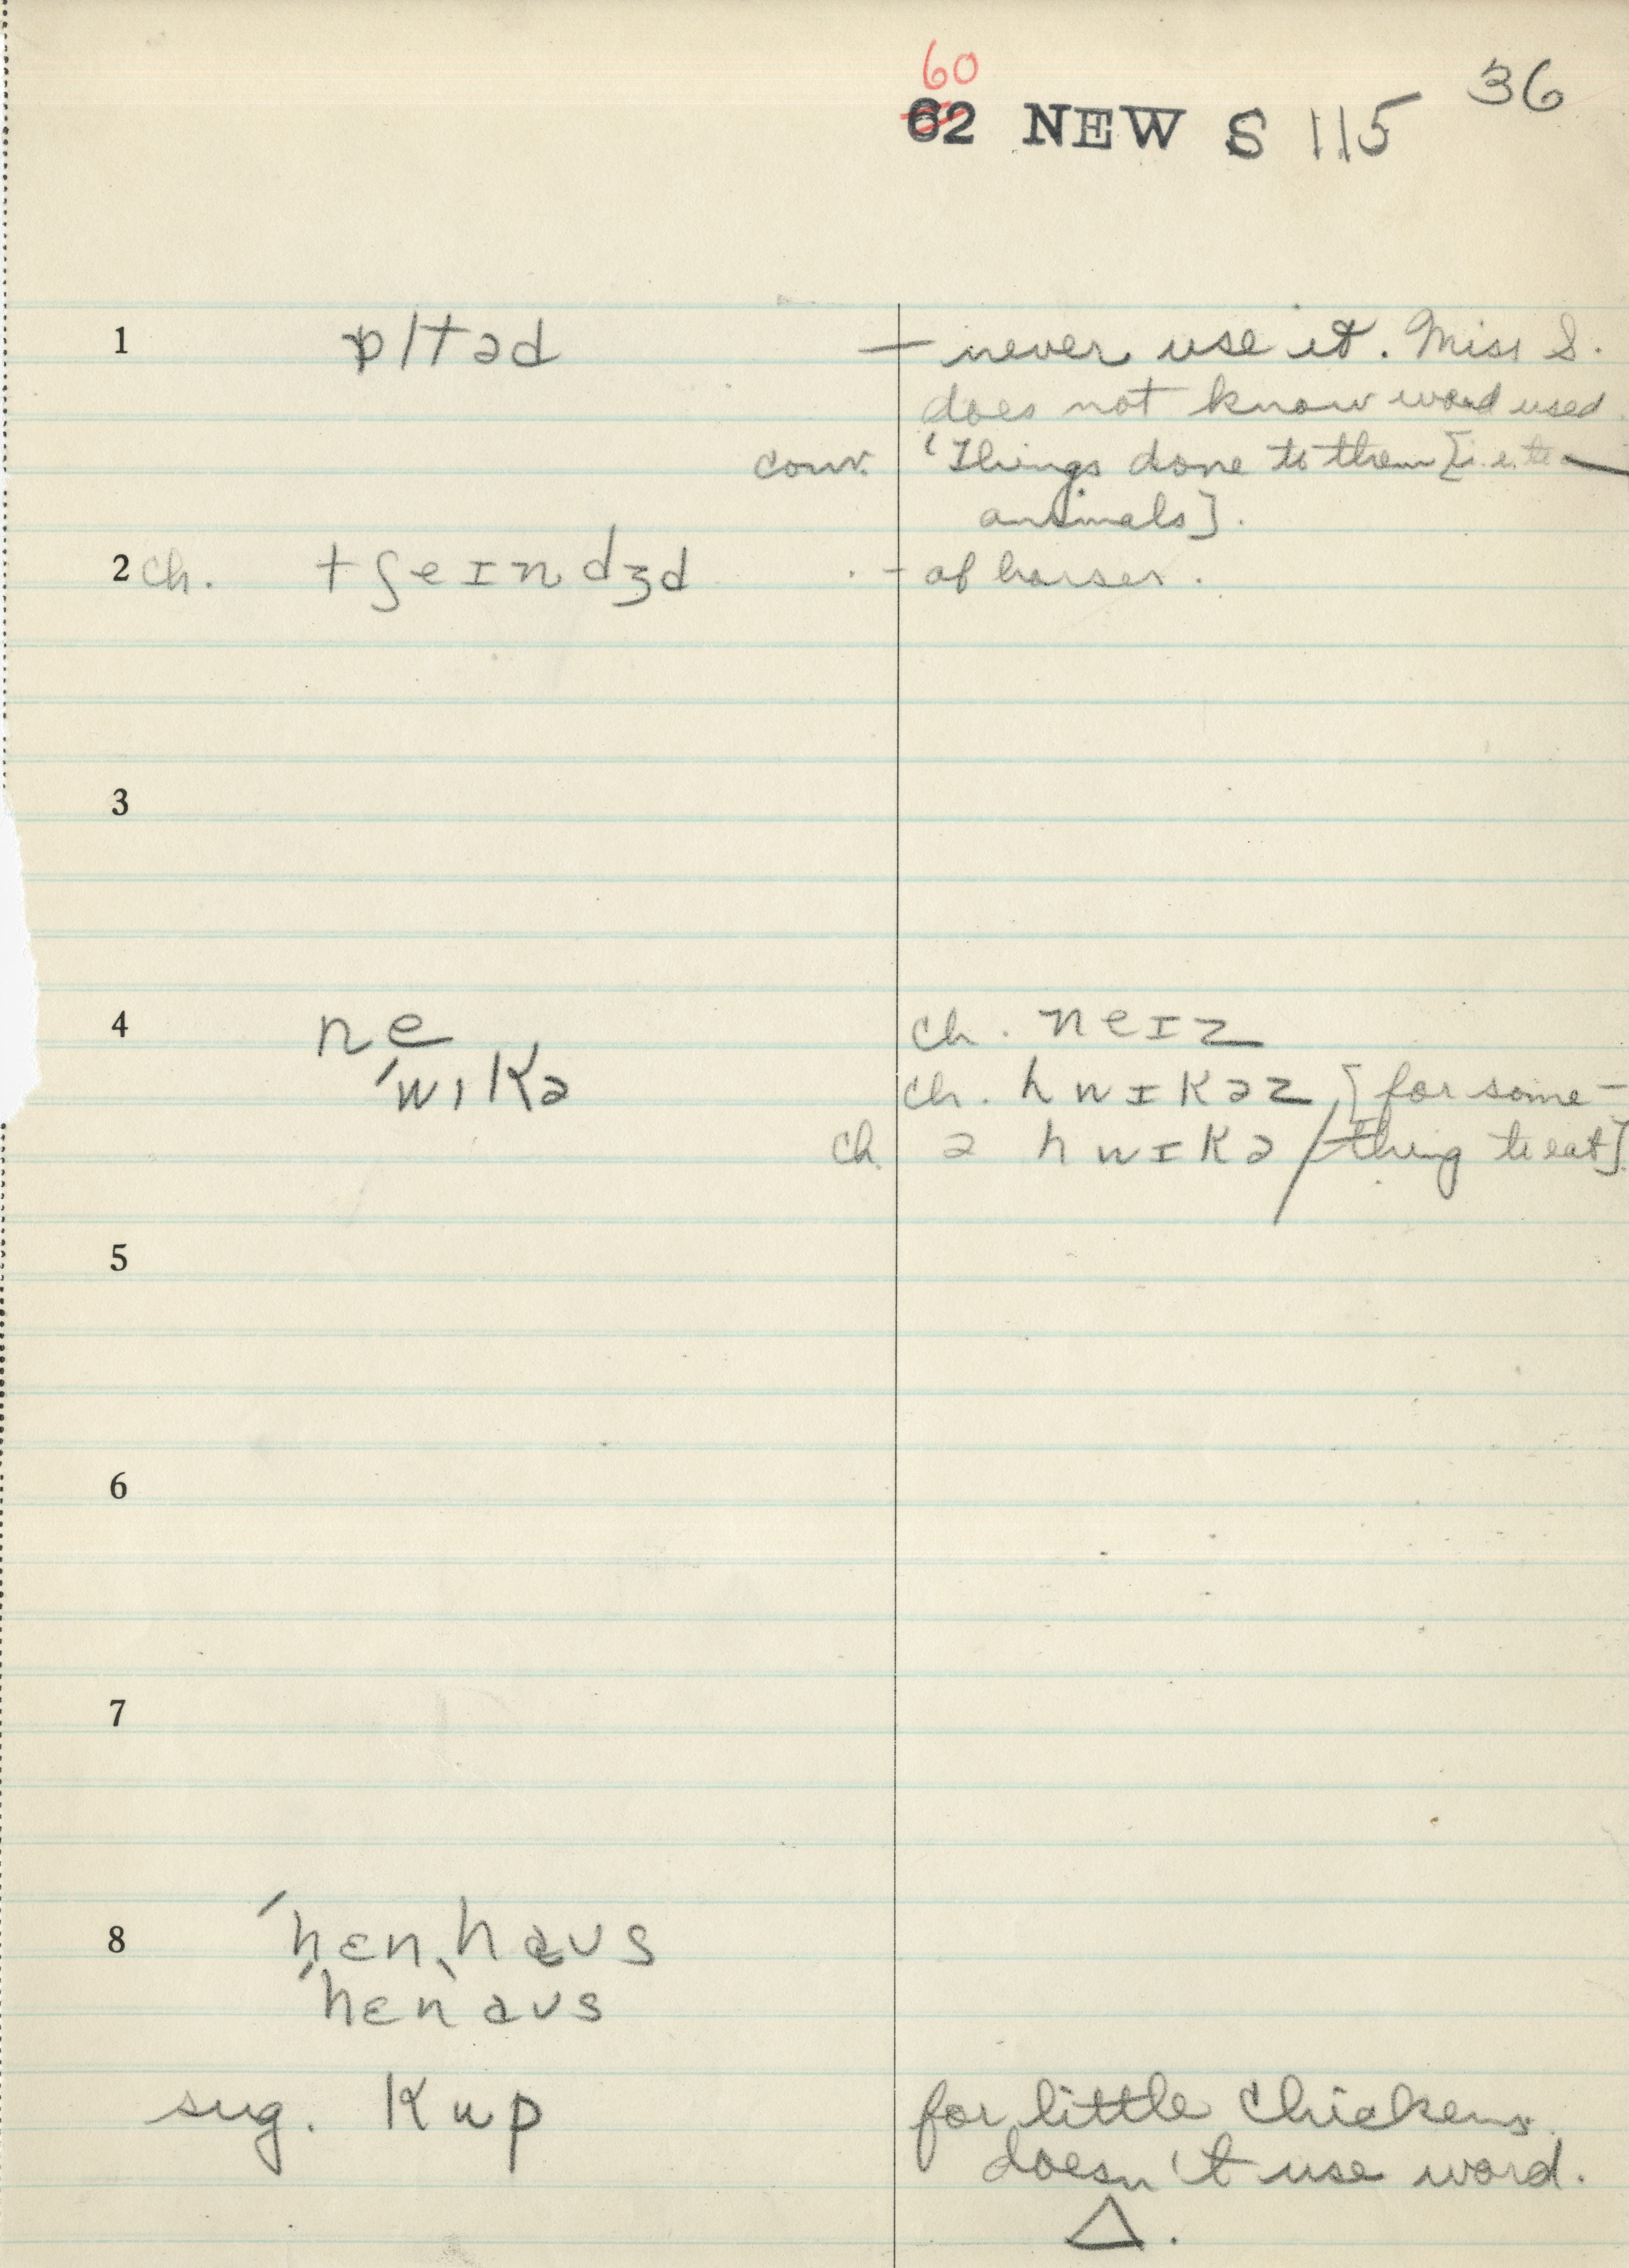 60
62 NEW S 115 36
1 pltəd — never use it. Miss S.
does not know word used.
conv. 'Things done to them [i.e. to
animals].
2 ch. tʃeɪndʒd - of horses.
3
4 ne ch. neɪz
ˈwɪkə ch. hwɪkəz [for some-
ch. ə hwɪkə / thing to eat]
5
6
7
8 ˈhɛnˌhaʊs
ˈhɛnˌaʊs
sug. kup for little chickens.
doesn't use word.
△.